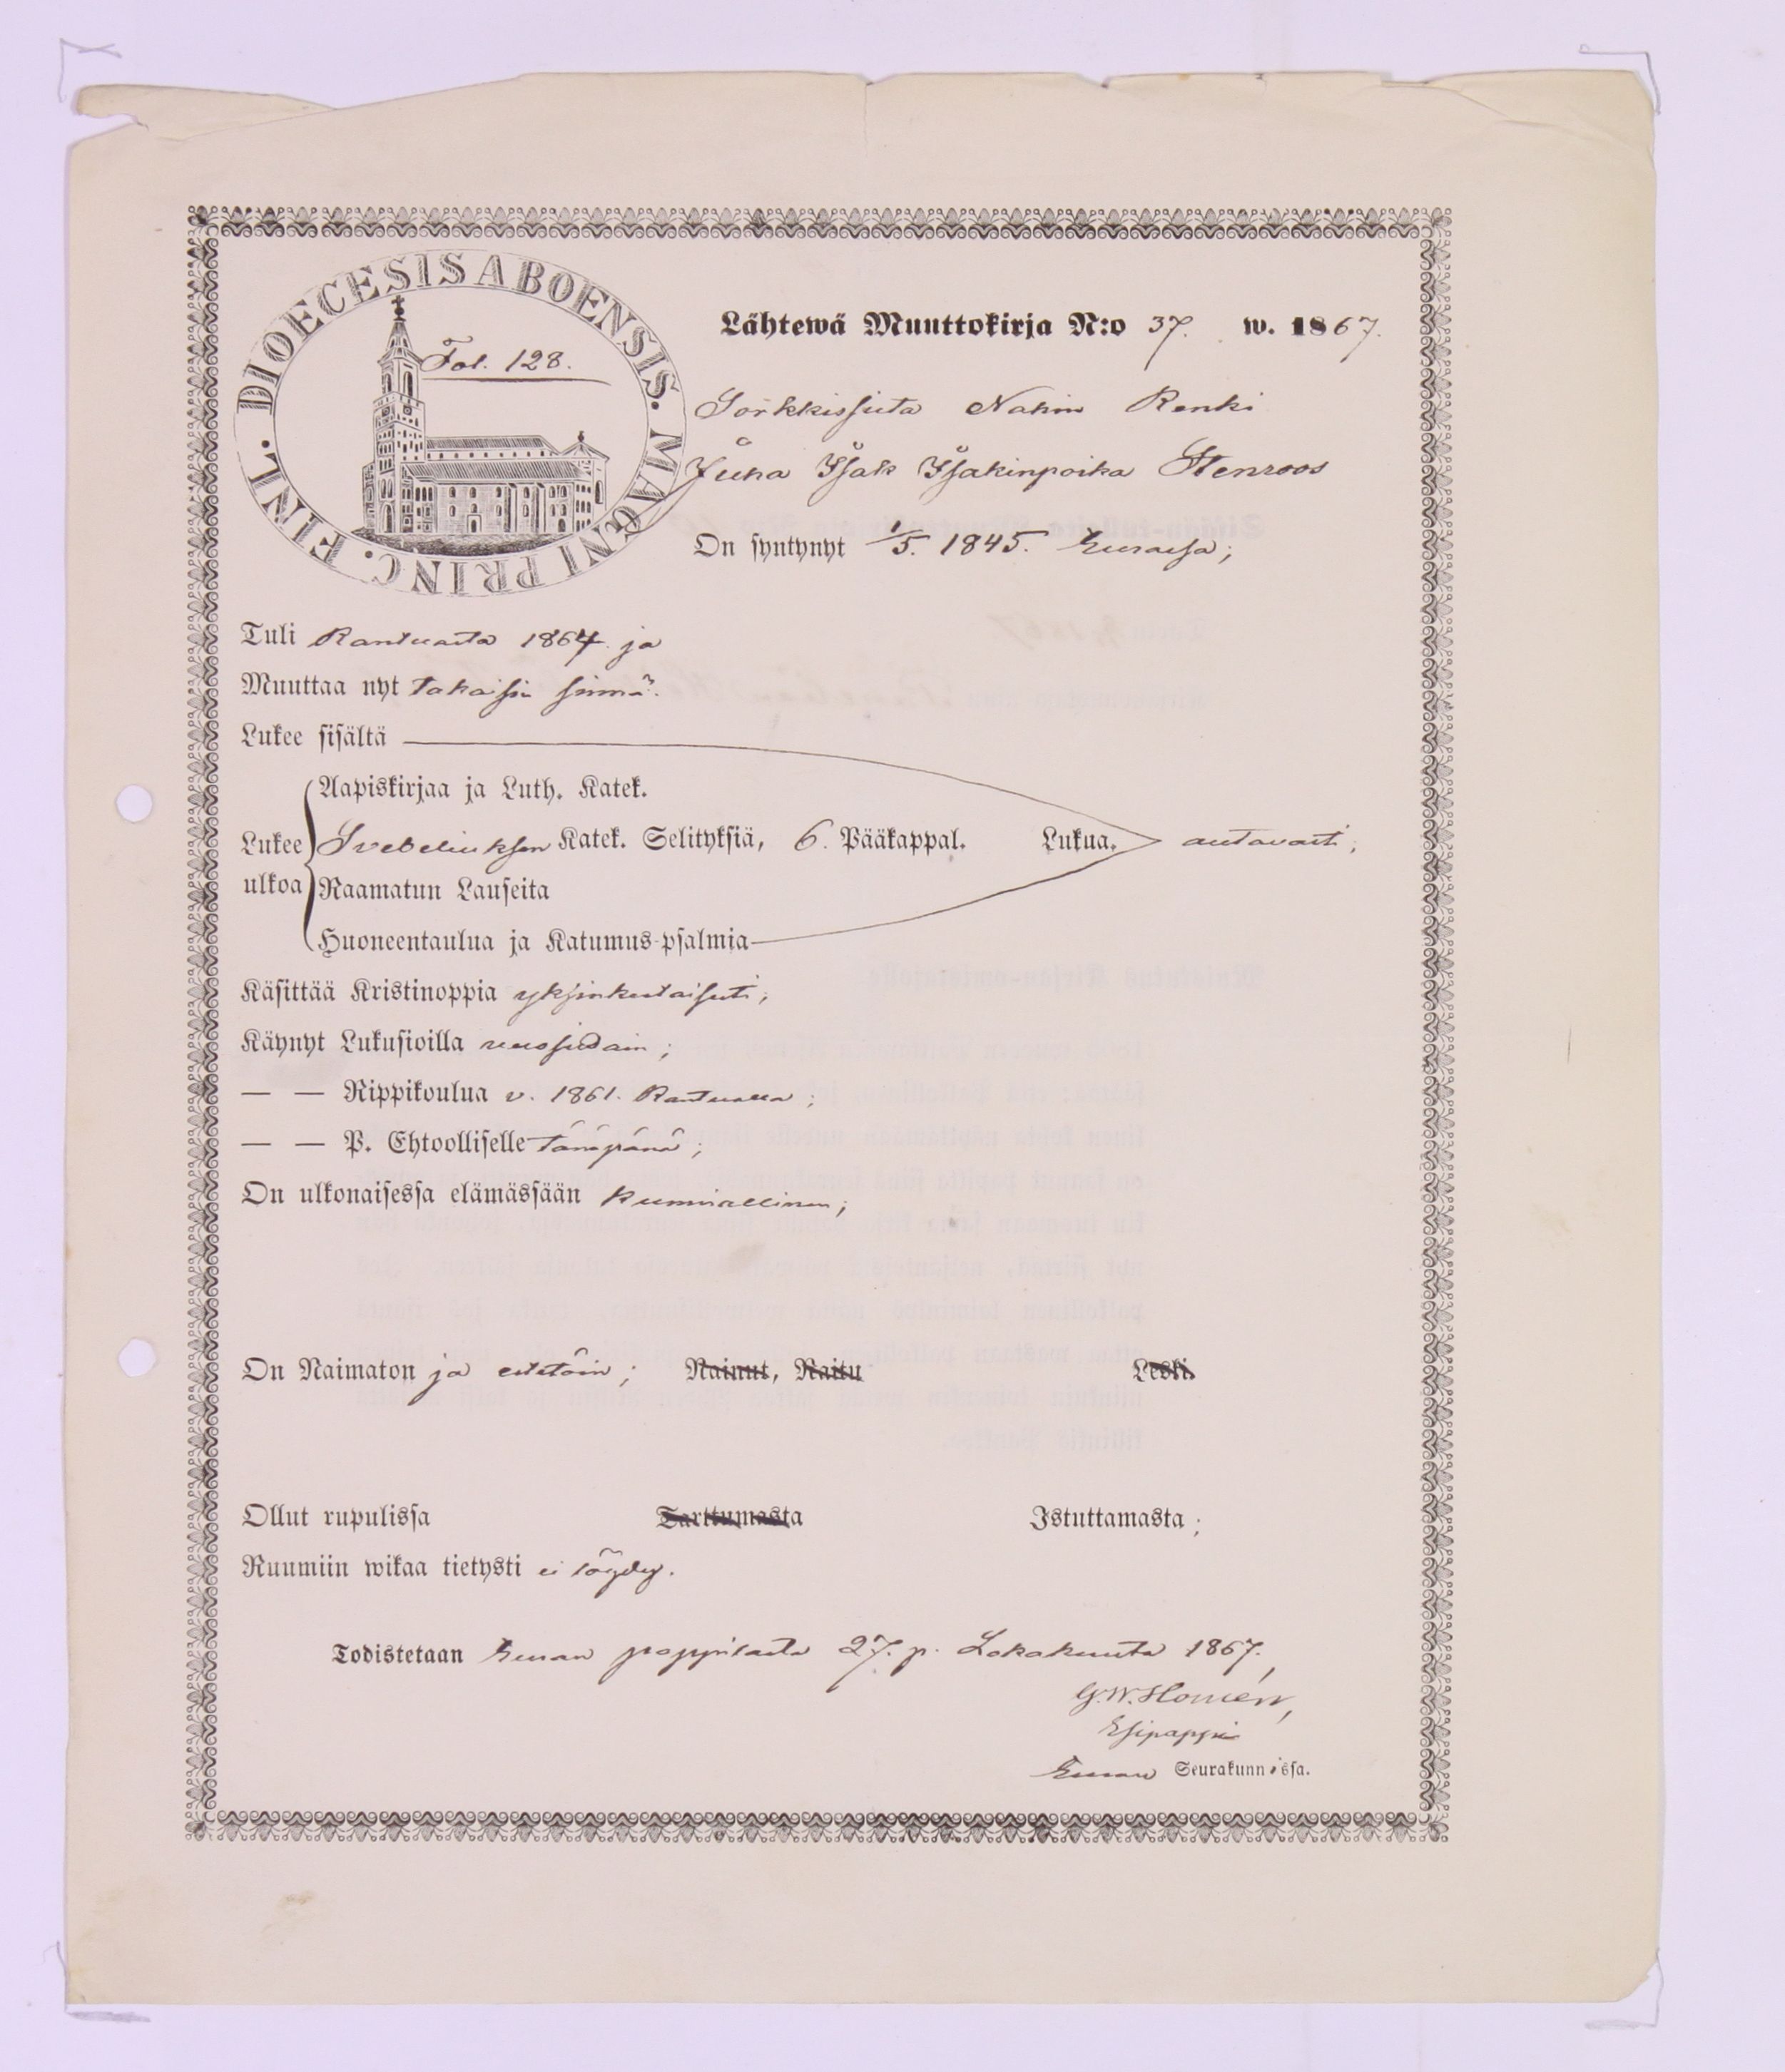 DIOECESIS ABOENSIS. MAGNI PRINC. FINL.
Fol. 128.
Lähtewä Muuttokirja N:o 37. w. 1867.
Sorkkisista Nahin Renki
Juha Isak Isakinpoika Stenroos
On syntynyt 1/5. 1845. Eurassa;
Tuli Rantuasta 1864. ja
Muuttaa nyt takaisin sinnä.
Lukee sisältä
Aapiskirjaa ja Luth. Katek.
Lukee Svebeliuksen Katek. Selityksiä, 6. Pääkappal. Lukua. autavasti;
ulkoa Raamatun Lauseita
Huoneentaulua ja Katumus-psalmia
Käsittää Kristinoppia yksinkertaisesti;
Käynyt Lukusioilla vuosittain;
— — Rippikoulua v. 1861. Rantualla;
— — P. Ehtoolliselle tänäpänä;
On ulkonaisessa elämässään kunniallinen;
On Naimaton ja estetöin; Nainut, Naitu Leski.
Ollut rupulissa Tarttumasta Istuttamasta;
Ruumiin wikaa tietysti ei löydy.
Todistetaan Euran pappilasta 27. p. Lokakuuta 1867.,
G.W. Homén,
Esipappi
Euran Seurakunnissa.